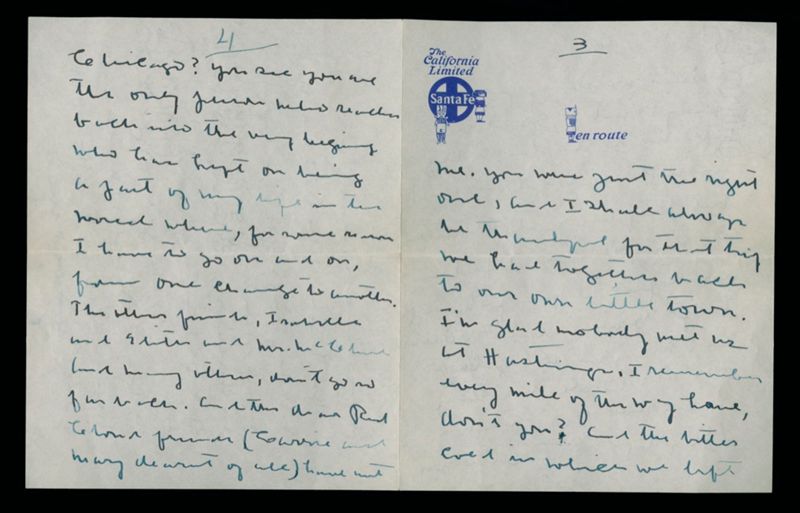 4
Chicago? You see you are
the only person who reaches
back into the very begining
who has kept on being
a part of my life in the
world where, for some reason
I have to go on and on,
from one change to another.
The other friends, Isabelle
and Edith and Mrs. McClure
and many others, don't go so
far back. And the dear Red
Cloud friends (Carrie and
Mary dearest of all) have not
3
The
California
Limited
Santa Fe
en route
me. You were just the right
one, and I shall always
be thankful for that trip
we had together back
to our own little town.
I'm glad nobody met us
at Hastings. I remember
every mile of the way home,
don't you? And the bitter
cold in which we left